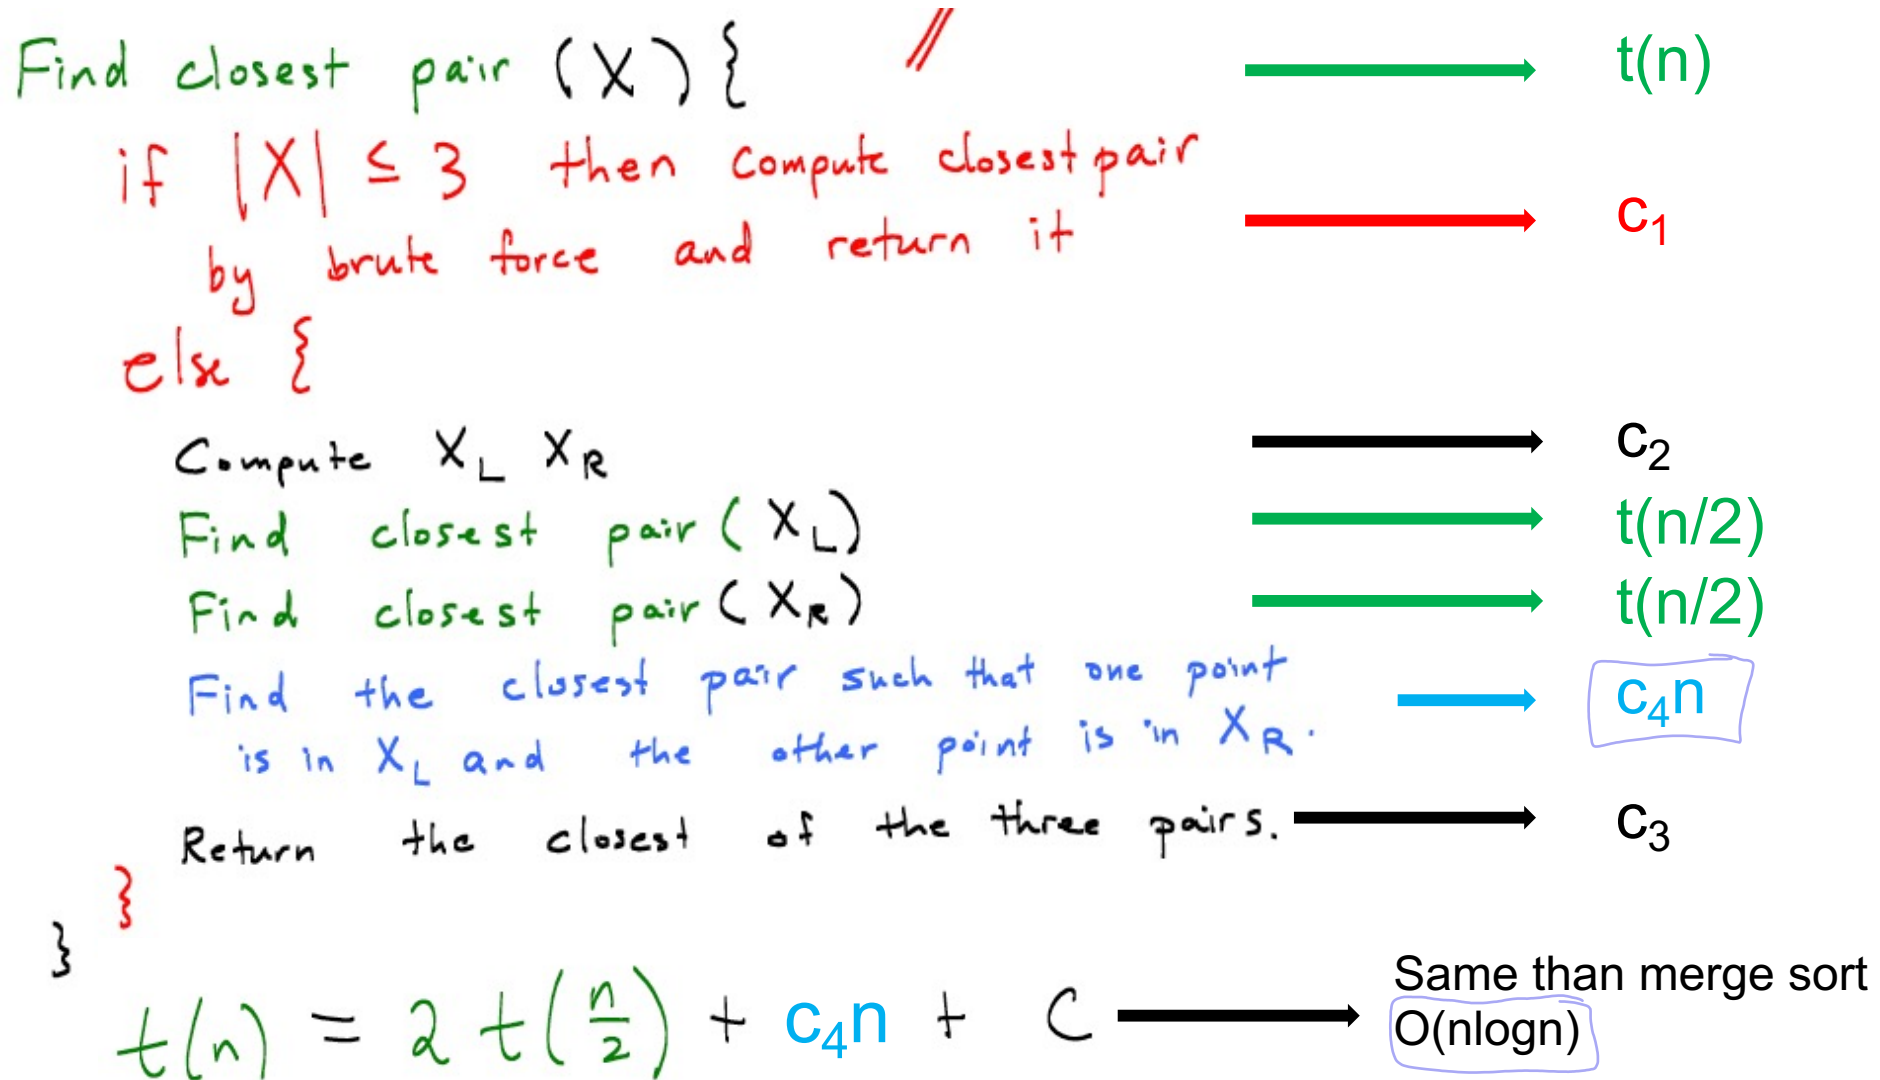 Find closest pair (X) { // t(n)
if |X| ≤ 3 then compute closest pair
by brute force and return it c₁
else {
Compute X_L X_R c₂
Find closest pair (X_L) t(n/2)
Find closest pair (X_R) t(n/2)
Find the closest pair such that one point c₄n
is in X_L and the other point is in X_R.
Return the closest of the three pairs. c₃
}
}
Same than merge sort
t(n) = 2 t(n/2) + c₄n + C O(nlogn)